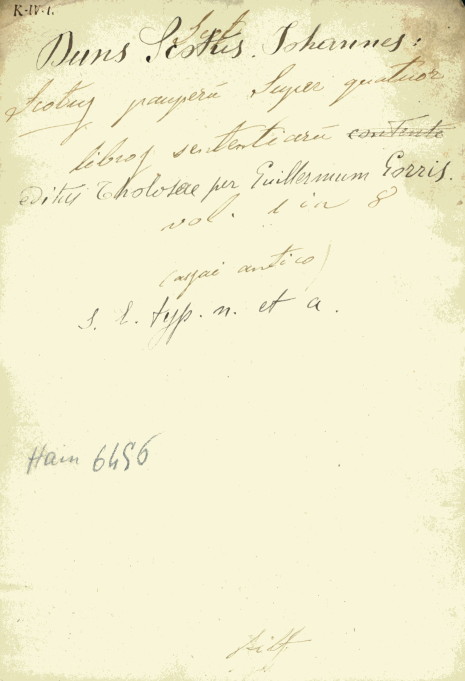 K-IV-1.
Duns Scotus. Johannes:
Scotus pauperũ Super quatuor
libros sententiarũ
editus Tholosae per Guillermum Gorris.
vol. 1 in 8
(assai antico)
s. l. typ. n. et a.
Hain 6456